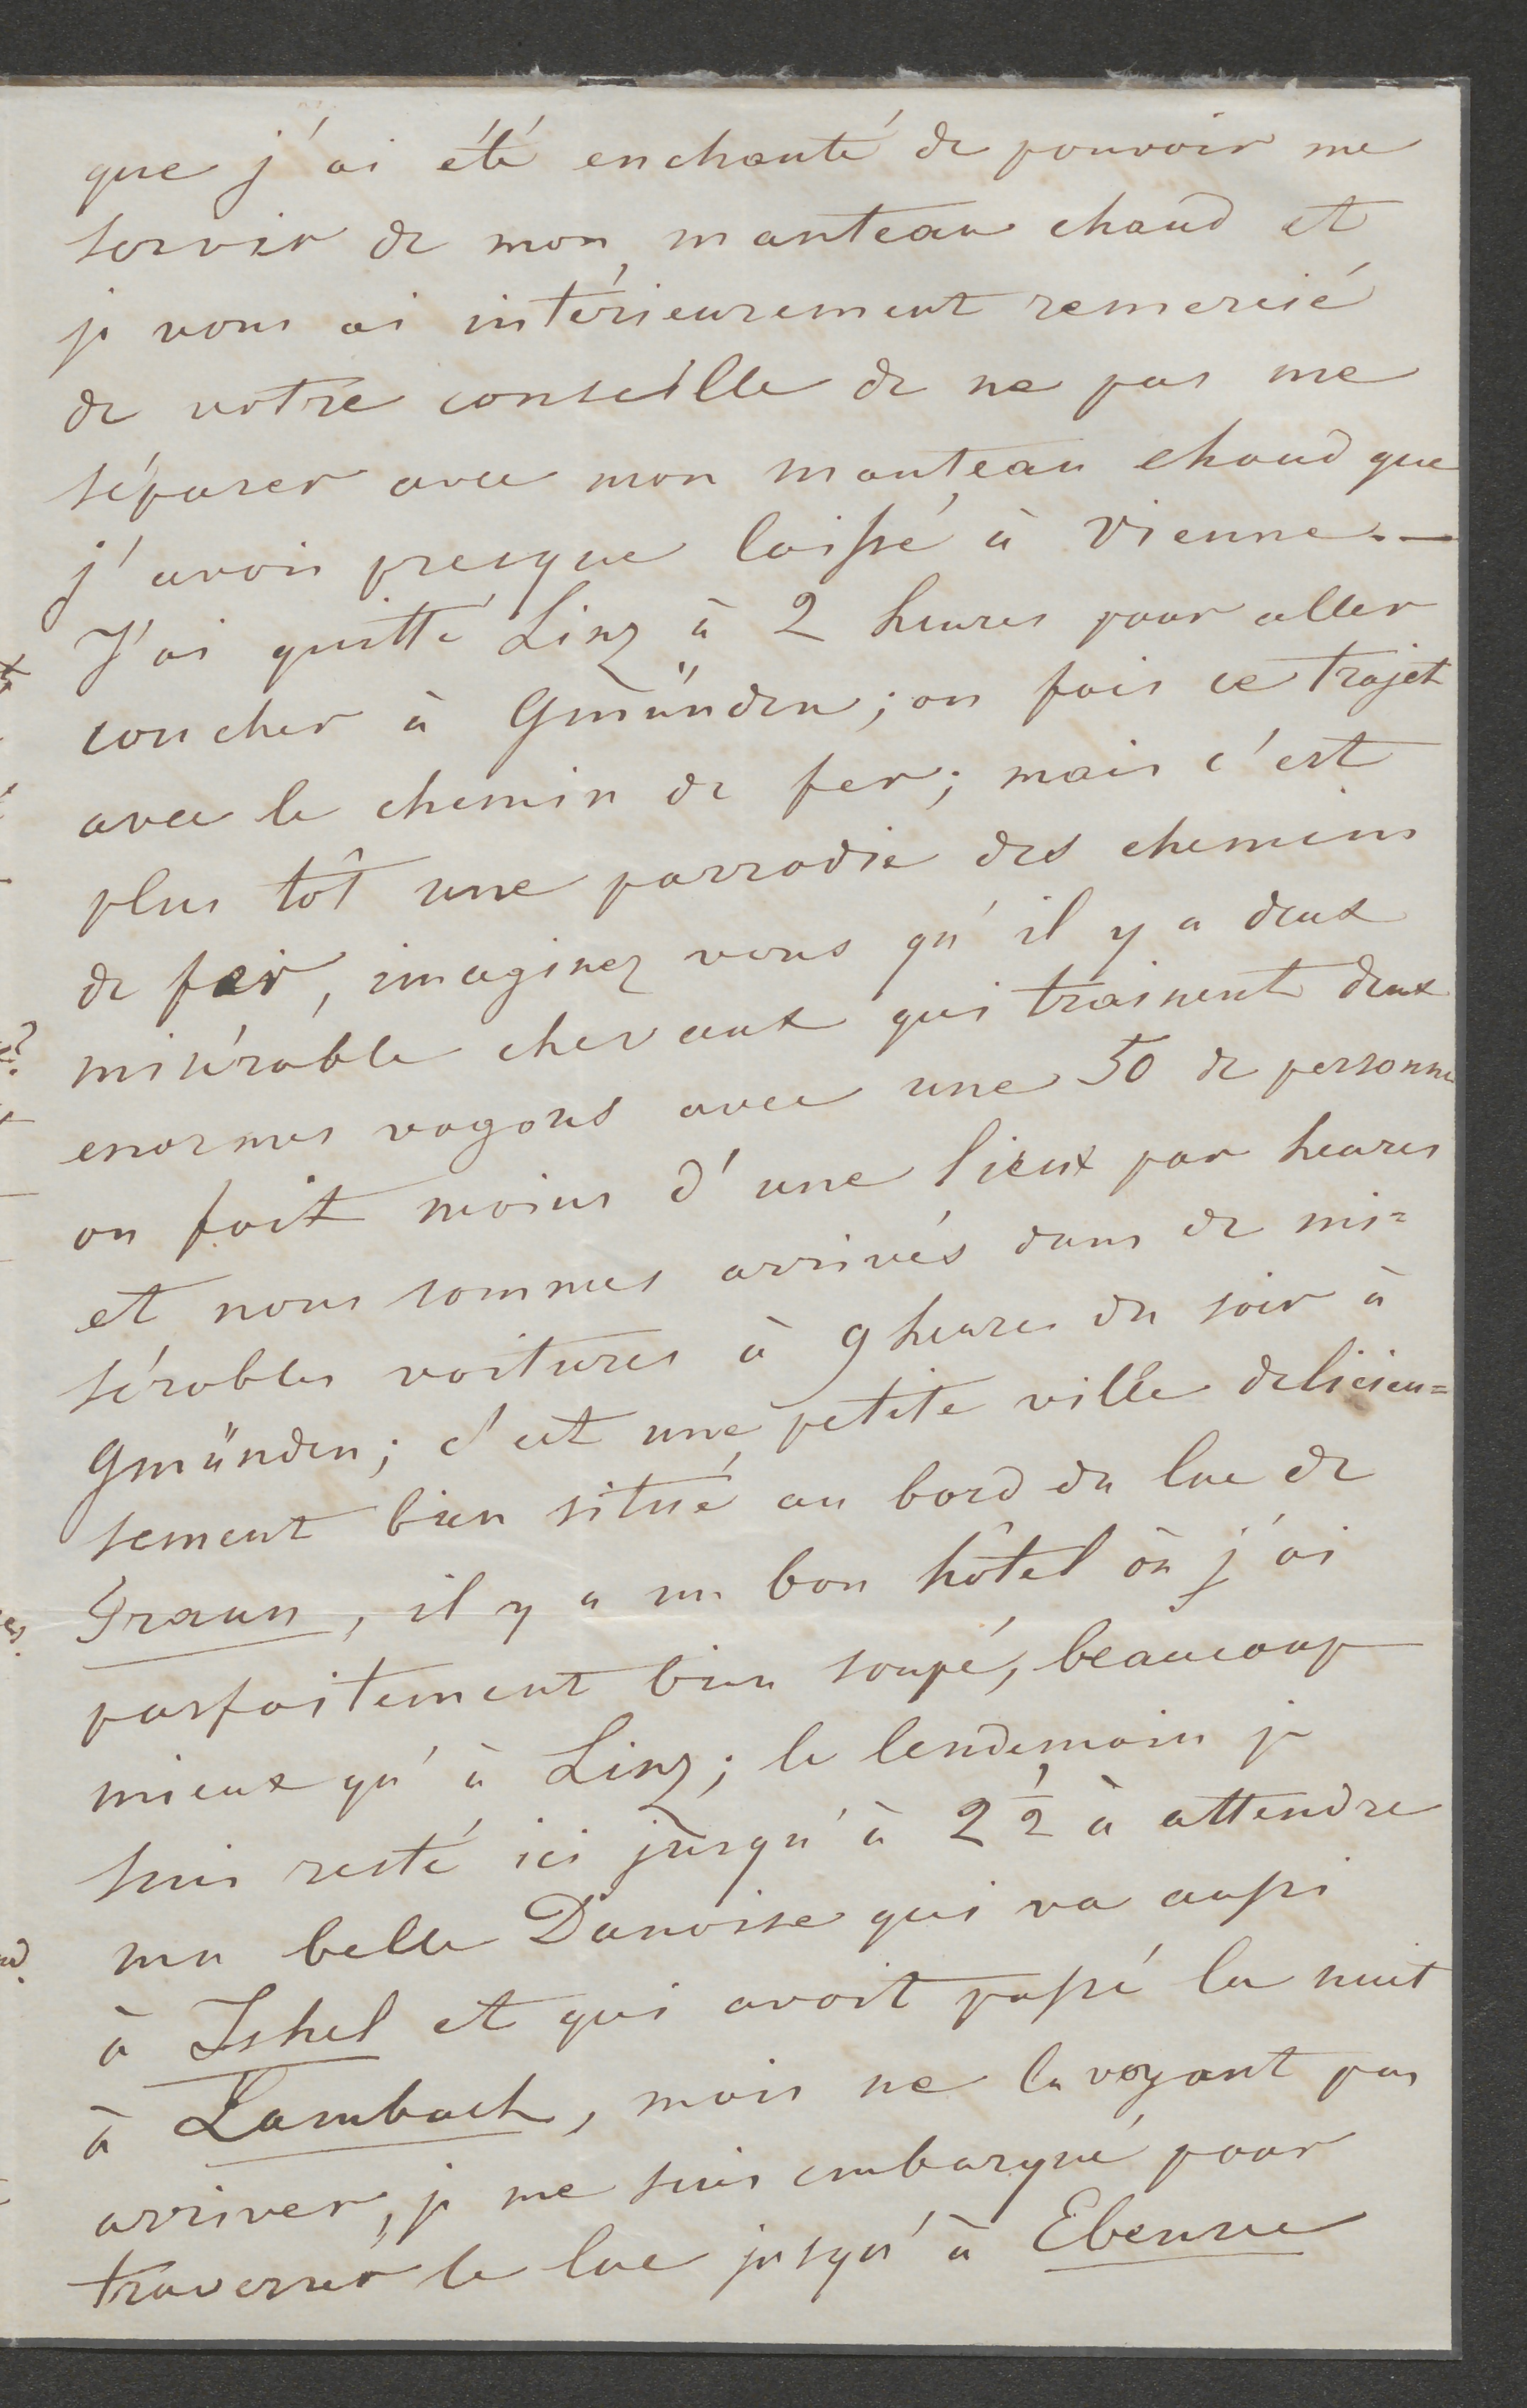 que j'ai été enchanté de pouvoir me
servir de mon manteau chaud et
je vous ai intérieurement remercié
de votre conseille de ne pas me
séparer avec mon manteau chaud que
j'avois presque laissé à Vienne. —
J'ai quitté Linz à 2 heures pour aller
coucher à Gmünden; on fais ce trajet
avec le chemin de fer; mais c'est
plus tôt une parrodie des chemins
de fer, imaginez vous qu'il y a deux
misérable chevaux qui trainent deux
enormes vagons avec une 50 de personne
on fait moins d'une lieux par heures
et nous sommes arrivés dans de mi=
sérables voitures à 9 heures du soir à
Gmünden; c'est une petite ville delicieu=
sement bien situé au bord du lac de
Traun, il y a un bon hôtel où j'ai
parfaitement bien soupé, beaucoup
mieux qu'à Linz; le lendemain je
suis resté ici jusqu'à 2 1/2 à attendre
ma belle Danoise qui va aussi
à Ishel et qui avoit passé la nuit
à Lambach, mais ne la voyant pas
arriver, je me suis embarqué pour
traverser le lac jusqu'à Ebenne